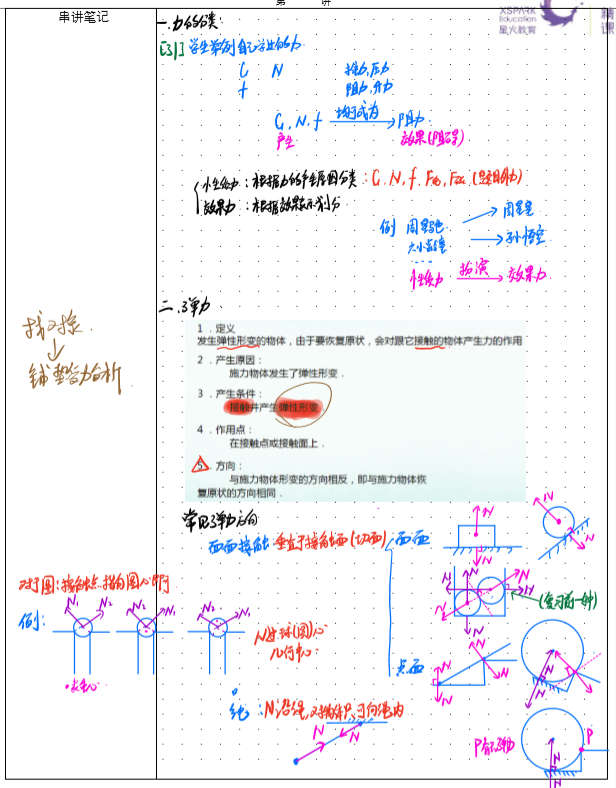 第 讲
XSPARK
Education
星火教育
精
课
串讲笔记
一.力的分类:
[引] 学生举例自己学过的力
G N 推力,压力
f 阻力,升力
G、N、f 均可成为 阻力
产生 效果(阻碍)
性质力:根据力的产生原因分类:G、N、f、F电、F磁
效果力:根据效果来划分
例 周星驰 周星星
孙悟空
性质力 扮演 效果力
二.弹力
1.定义
发生弹性形变的物体,由于要恢复原状,会对跟它接触的物体产生力的作用
2.产生原因:
施力物体发生了弹性形变.
3.产生条件:
接触并产生弹性形变.
4.作用点:
在接触点或接触面上.
5.方向:
与施力物体形变的方向相反,即与施力物体恢
复原状的方向相同.
找对象
↓
铺垫受力分析
常见弹力方向
面面接触:垂直于接触面(切面) 面面
N
N
N
N
N
N
对于圆:接触点指向圆心即可
例:
N₁ N₂ N₁ N₂ N₂ N₁
重心
N过球(圆)心
几何中心
(复习前一种)
点面
N
N
N
绳:N沿绳,对物体只可向绳内
N
N
P有弹力
P
N